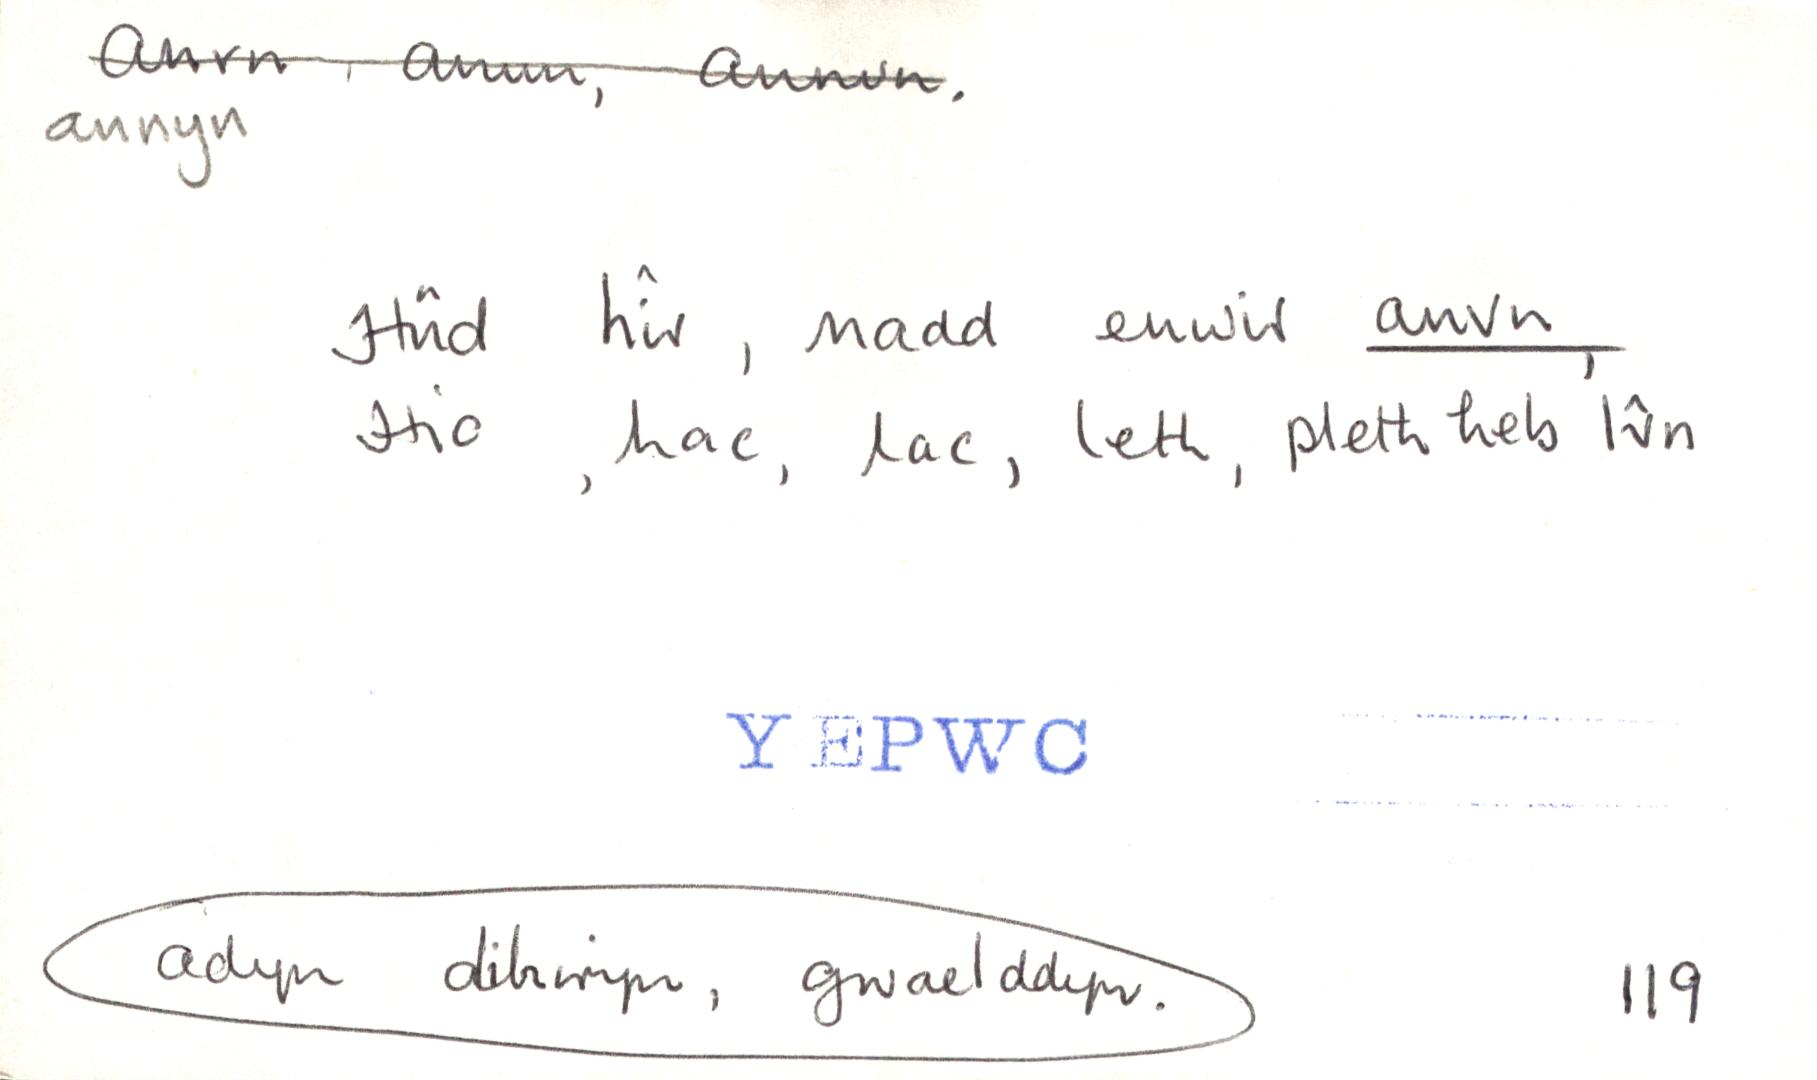 anvn, anun, annvn.
annyn
Hûd hîr, nadd enwir anvn,
Hic, hac, lac, leth, pleth heb lv̂n
YEPWC
adyn dibwyn, gwaelddyn.
119